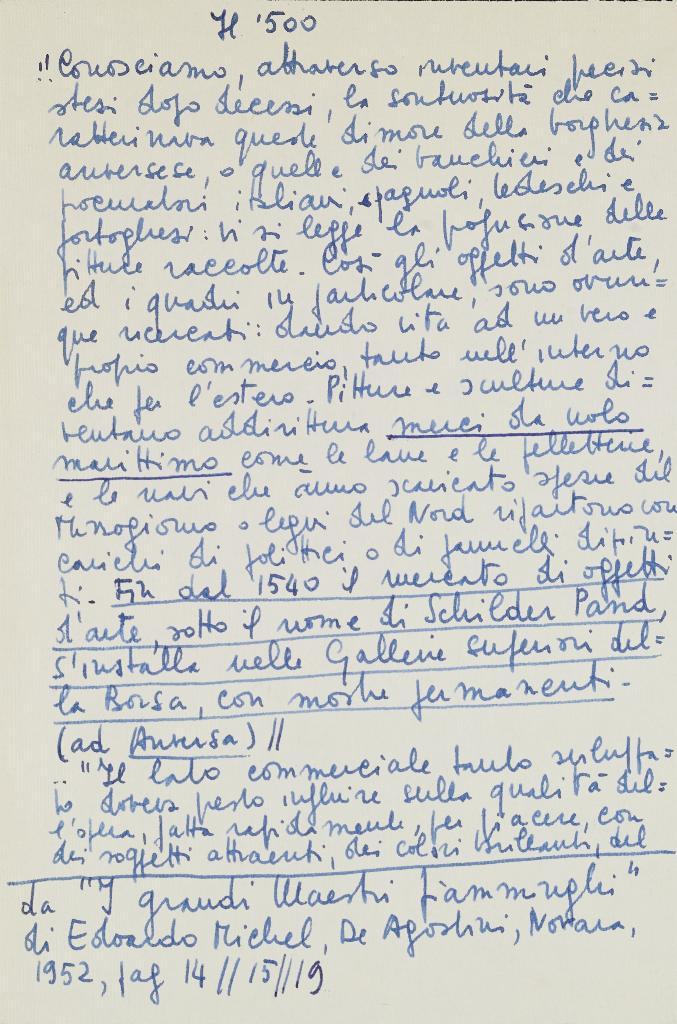 Il '500
"Conosciamo, attraverso inventari precisi
stesi dopo decessi, la sontuosità che ca=
ratterizzava queste dimore della borghesia
anversese, o quelle dei banchieri e dei
procuratori italiani, spagnoli, tedeschi e
portoghesi: vi si legge la profusione delle
pitture raccolte. Così gli oggetti d'arte,
ed i quadri in particolare, sono ovun=
que ricercati: dando vita ad un vero e
proprio commercio, tanto nell'interno
che per l'estero. Pitture e sculture di=
ventano addirittura merci da nolo
marittimo come le lane e le pelletterie,
e le navi che ànno scaricato spezie del
Mezzogiorno o legni del Nord ripartono con
carichi di polittici o di pannelli dipin=
ti. Fin dal 1540 il mercato di oggetti
d'arte, sotto il nome di Schilder Pand,
s'installa nelle Gallerie superiori del=
la Borsa, con mostre permanenti.
(ad Anversa) //
.. "Il lato commerciale tanto sviluppa=
to doveva presto influire sulla qualità del=
l'opera, fatta rapidamente, per piacere, con
dei soggetti attraenti, dei colori brillanti, del
da "I grandi Maestri fiamminghi"
di Edoardo Michel, De Agostini, Novara,
1952, pag 14 // 15 // 19